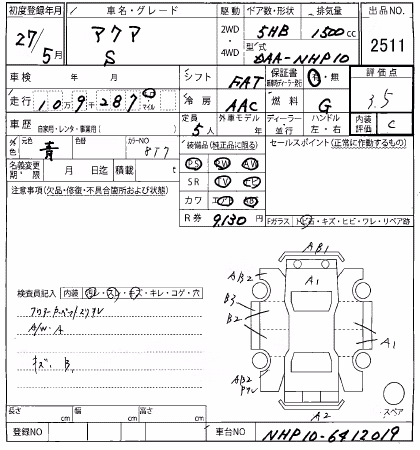 初度登録年月 車名・グレード 駆動 ドア数・形状 排気量 出品NO.
27/5月 アクア S 2WD・4WD 5HB 1500cc 2511
型式 DAA-NHP10
車検 年 月 シフト FAT 保証書 有・無 評価点 3.5
走行 10万9千287 km マイル 冷房 AAC 燃料 G
車歴 自家用・レンタ・事業用( ) 定員 5人 外車モデル 年 ディーラー・並行 ハンドル 左・右 内装評価 C
外色 元色 青 色替 カラーNO 8T7 装備品(純正品に限る) セールスポイント(正常に作動するもの)
名義変更期限 月 日迄 積載量 t PS PW AW
注意事項(欠品・修復・不具合箇所および状態) SR TV ナビ
カワ エアB AB
R券 9,130 Fガラス トビ石・キズ・ヒビ・ワレ・リペア跡
AB1
AB2 A1
B3
B2
A1
AB2
A2
スペア
検査員記入 内装 ヨレ・スレ・キズ・キレ・コゲ・穴
A/W・A
キズ、B,
長さ cm 幅 cm 高さ cm
登録NO 車台NO NHP10-6412019